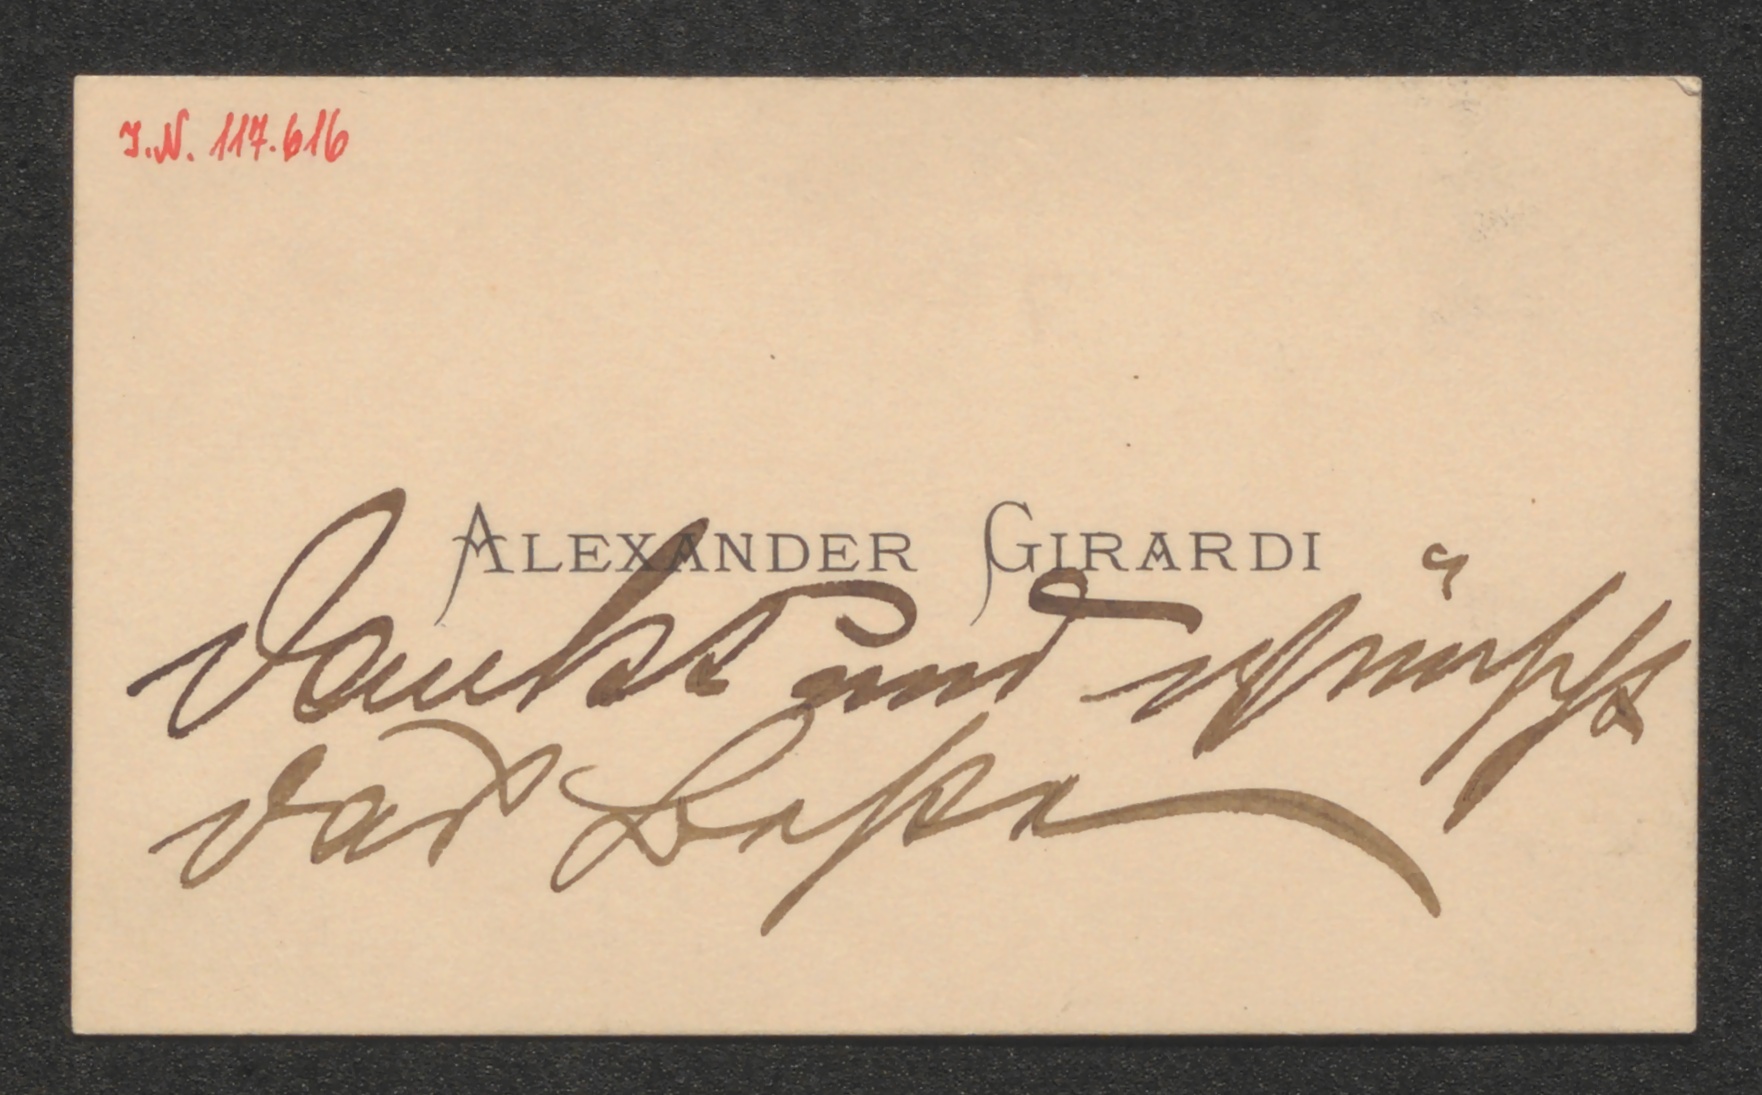 I.N. 117.616
ALEXANDER GIRARDI
Dankt und wünscht
das Beste